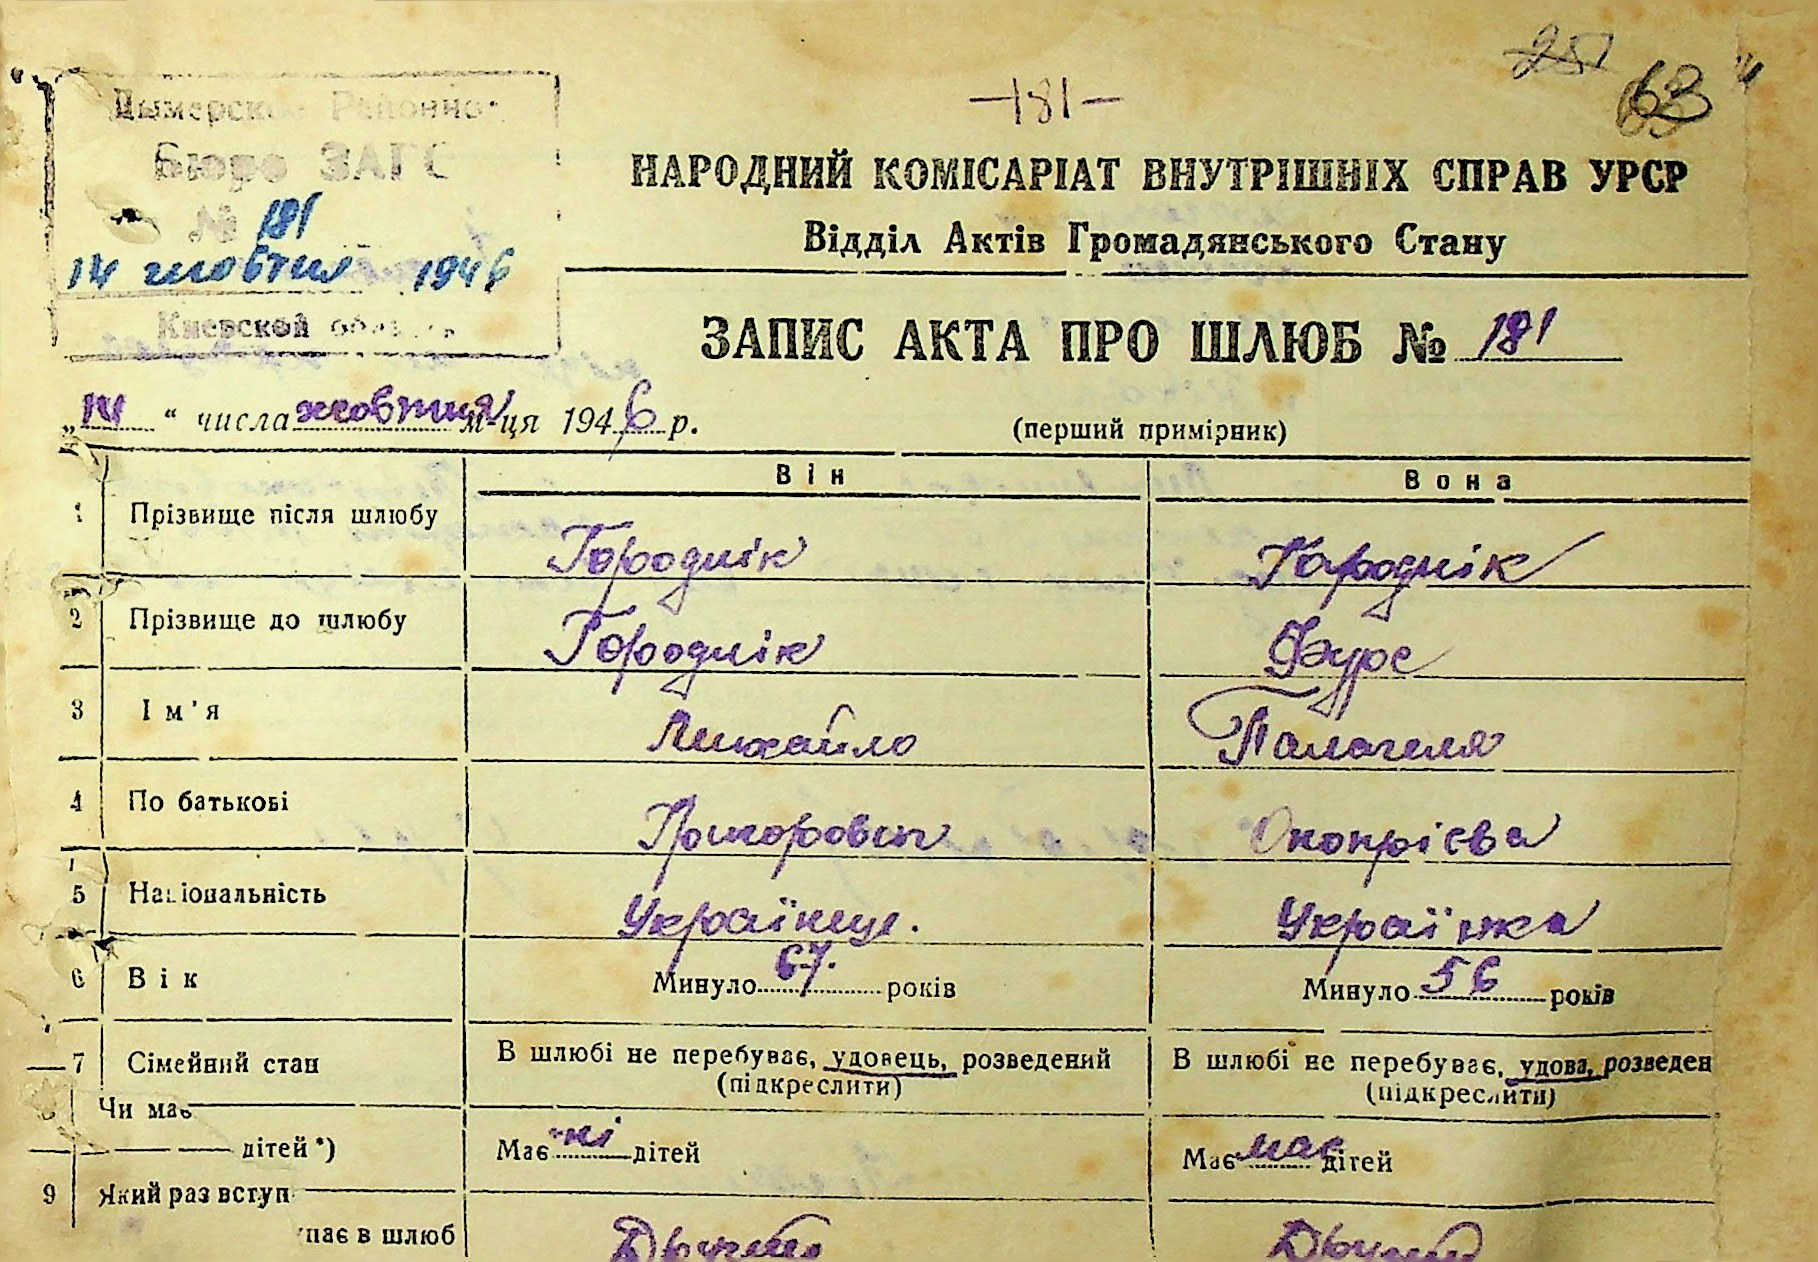 25
63
-181-
Дымерское Районно
Бюро ЗАГС
№ 181
14 жовтня 1946
Киевской область
НАРОДНИЙ КОМІСАРІАТ ВНУТРІШНІХ СПРАВ УРСР
Відділ Актів Громадянського Стану
ЗАПИС АКТА ПРО ШЛЮБ № 181
„14“ числа жовтня м-ця 1946 р.
(перший примірник)
Він Вона
1 Прізвище після шлюбу Городнік Городнік
2 Прізвище до шлюбу Городнік Фурс
3 Ім'я Михайло Палагеля
4 По батькові Григорович Онопрієва
5 Національність Українець. Українка
6 Вік Минуло 67. років Минуло 56 років
7 Сімейний стан В шлюбі не перебуває, удовець, розведений В шлюбі не перебуває, удова, розведен
(підкреслити) (підкреслити)
Чи має
дітей *) Має ні дітей Має має дітей
9 Який раз вступ
пає в шлюб Другий Другий